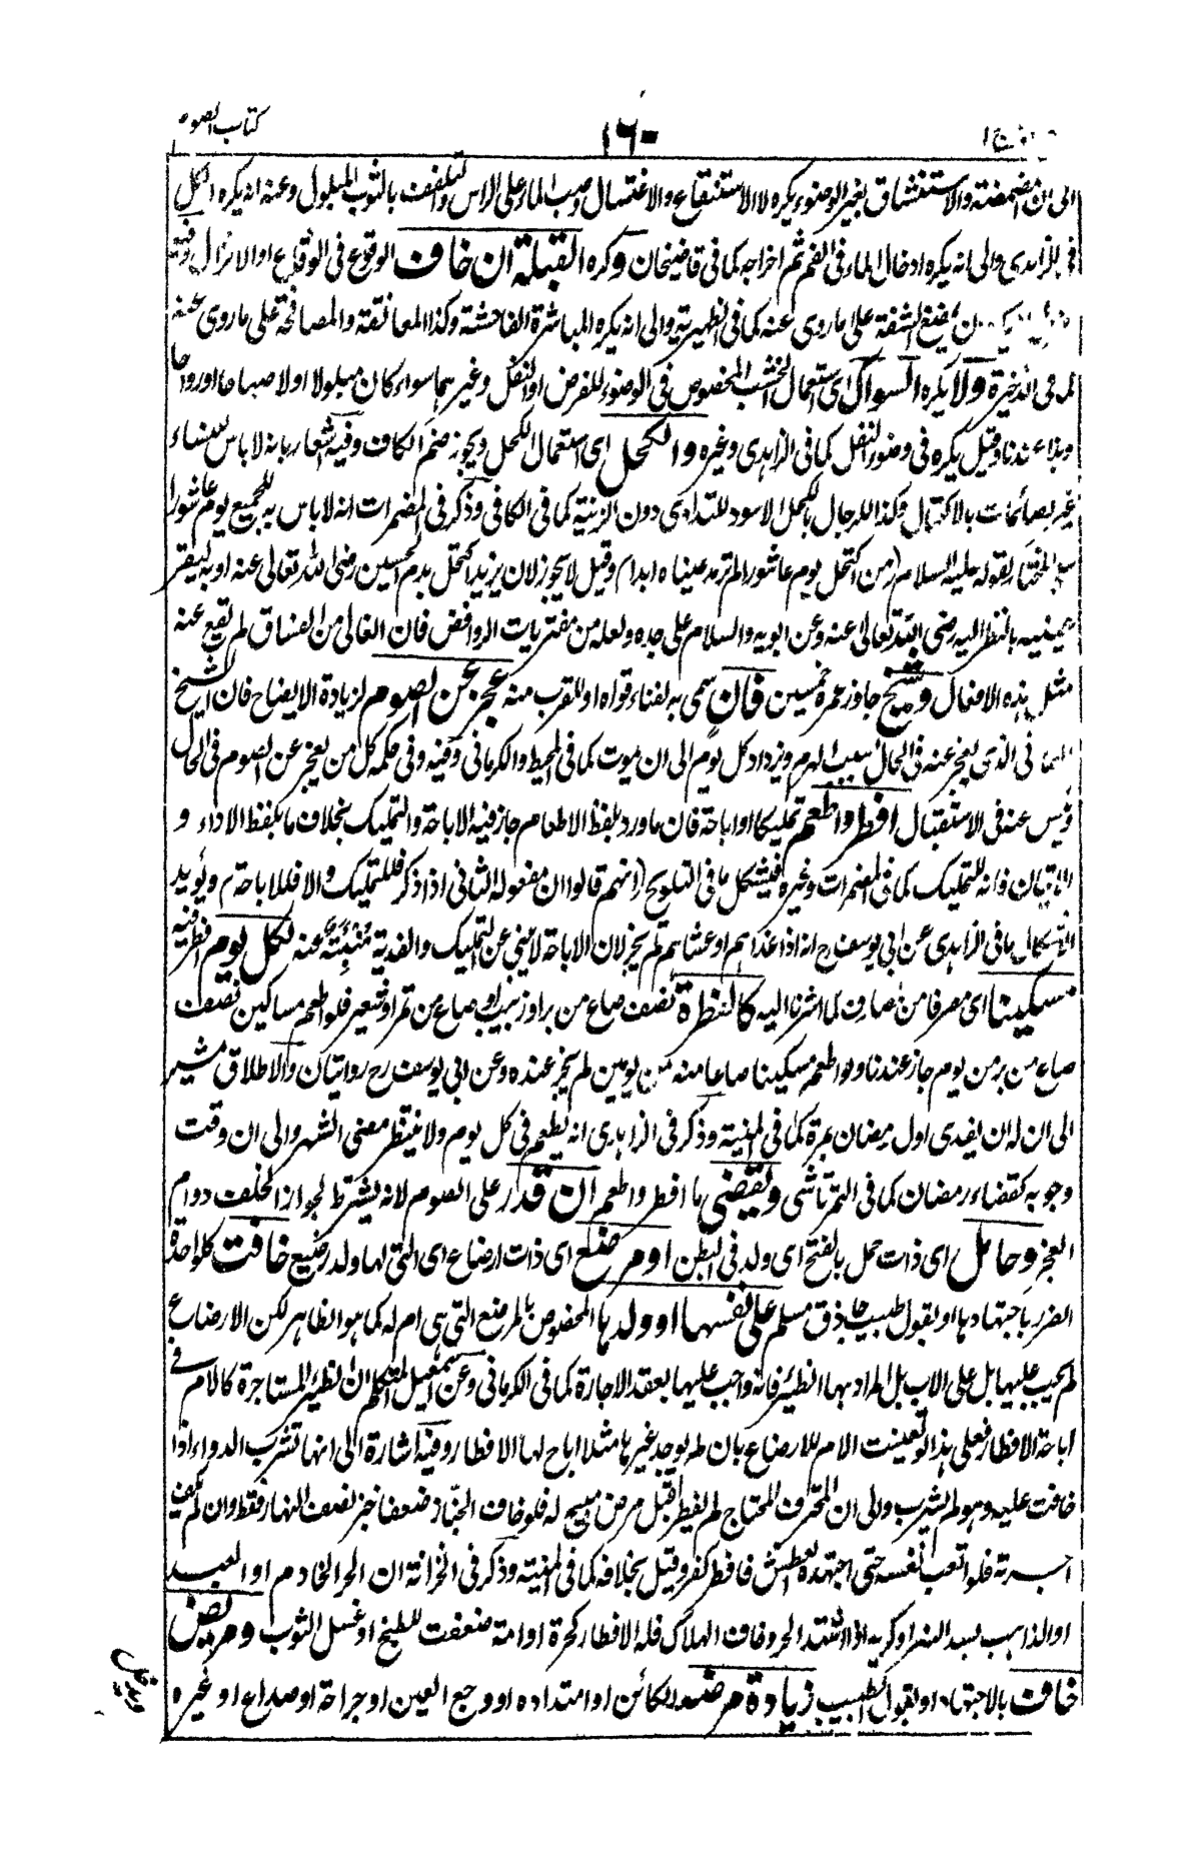 كتاب الصوم
١٦٠
الى ان المضمضة والاستنشاق بغير الوضوء يكره لا الاستنقاع والاغتسال وصب الماء على الراس والتلفف بالثوب المبلول وعنه انه يكره الكل
فى الزاهدى والى انه يكره ادخال الماء فى الفم ثم اخراجه كما فى قاضيخان وكره القبلة ان خاف الوقوع فى الوقاع او الانزال وفيه
يمضغ الشفة على ما روى عنه كما فى الظهيرية والى انه يكره المباشرة الفاحشة وكذا المعانقة والمصافحة على ما روى عنه
كما فى الذخيرة ولا يكره السواك اى استعمال الخشب المخصوص فى الوضوء للفرض او النفل وغيرهما سواء كان مبلولا اولا صباحا او رواحا
وهذا عندنا وقيل يكره فى وضوء النفل كما فى الزاهدى وغيره والكحل اى استعمال الكحل ويجوز ضم الكاف وفيه اشعار بانه لا باس للنساء
غير صائمات بالاكتحال وكذا للرجال بالكحل الاسود للتداوى دون الزينة كما فى الكافى وذكر فى المضمرات انه لا باس به للجميع يوم عاشورا
المختار لقوله عليه السلام (من اكتحل يوم عاشورا لم ترمد عيناه ابدا) وقيل لا يجوز لان يزيد اكتحل بدم الحسين رضى الله تعالى عنه او به ليقر
عينيه بالنظر اليه رضى الله تعالى عنه وعن ابويه والسلام على جده ولعله من مفتريات الروافض فان الغالى من الفساق لم تقع عنه
مثل هذه الافعال وشيخ جاوز عمره خمسين فان سمى به لفناء قواه او للقرب منه عجز عن الصوم لزيادة الايضاح فان الشيخ
الفانى الذى يعجز عنه فى الحال بسبب الهرم ويزداد كل يوم الى ان يموت كما فى المحيط والكرمانى وفيه وفى حكمه كل من يعجز عن الصوم فى الحال
ويئس عنه فى الاستقبال افطر واطعم تمليكا او اباحة فان ما ورد بلفظ الاطعام جاز فيه الاباحة والتمليك بخلاف ما بلفظ الاداء و
الايتان فانه للتمليك كما فى المضمرات وغيره فيشكل ما فى التلويح (انهم قالوا ان مفعوله الثانى اذا ذكر فللتمليك والا فللاباحة) ويؤيد
الاشكال ما فى الزاهدى عن ابى يوسف رح انه اذا غداهم او عشاهم لم يجز لان الاباحة لا تنبئ عن التمليك والفدية منبئة عنه لكل يوم افطر فيه
مسكينا اى مصرفا من مصارف لما اشرنا اليه كالفطرة نصف صاع من بر او زبيب او صاع من تمر او شعير فلو اطعم مساكين نصف
صاع من بر من يوم جاز عندنا ولو اطعم مسكينا صاعا منه من يومين لم يجز عنده وعن ابى يوسف رح روايتان والاطلاق مشير
الى ان له ان يفدى اول رمضان بمرة كما فى المنية وذكر فى الزاهدى انه يطعم فى كل يوم ولا ينتظر مضى الشهر والى ان وقت
وجوبه كقضاء رمضان كما فى التمرتاشى ويقضى ما افطر واطعم ان قدر على الصوم لانه يشترط لجواز الخلف دوام
العجز وحامل اى ذات حمل بالفتح اى ولد فى البطن او مرضع اى ذات ارضاع اى التى لها ولد رضيع خافت كل واحدة
الضرر باجتهادها او بقول طبيب حاذق مسلم على نفسها او ولدها المخصوص بالمرضع التى هى ام له كما هو الظاهر لكن الارضاع
لم يجب عليها بل على الاب بل المراد بها الظئر فانه واجب عليها بعقد الاجارة كما فى الكرمانى وعن اسمعيل المتكلم ان الظئر المستاجرة كالام فى
اباحة الافطار فعلى هذا لو تعينت الام للارضاع بان لم يوجد غيرها مثلا اباح لها الافطار وفيه اشارة الى انها تشرب الدواء اذا
خافت عليه وهو لم يشرب والى ان المحترف المحتاج لم يفطر قبل مرض مبيح له فلو خاف الخباز ضعفا خبز نصف النهار فقط وان لم يكف
اجرته فلو اتعب نفسه حتى اجتهده العطش فافطر كفر وقيل بخلافه كما فى المنية وذكر فى الخزانة ان الحر الخادم او العبد
او الذاهب لسد النهر او كريه اذا اشتد الحر وخاف الهلاك فله الافطار كحرة او امة ضعفت للطبخ او غسل الثوب ومريض
خاف بالاجتهاد او بقول الطبيب زيادة مرضه الكائن او امتداده او وجع العين او جراحة او صداع او غيره